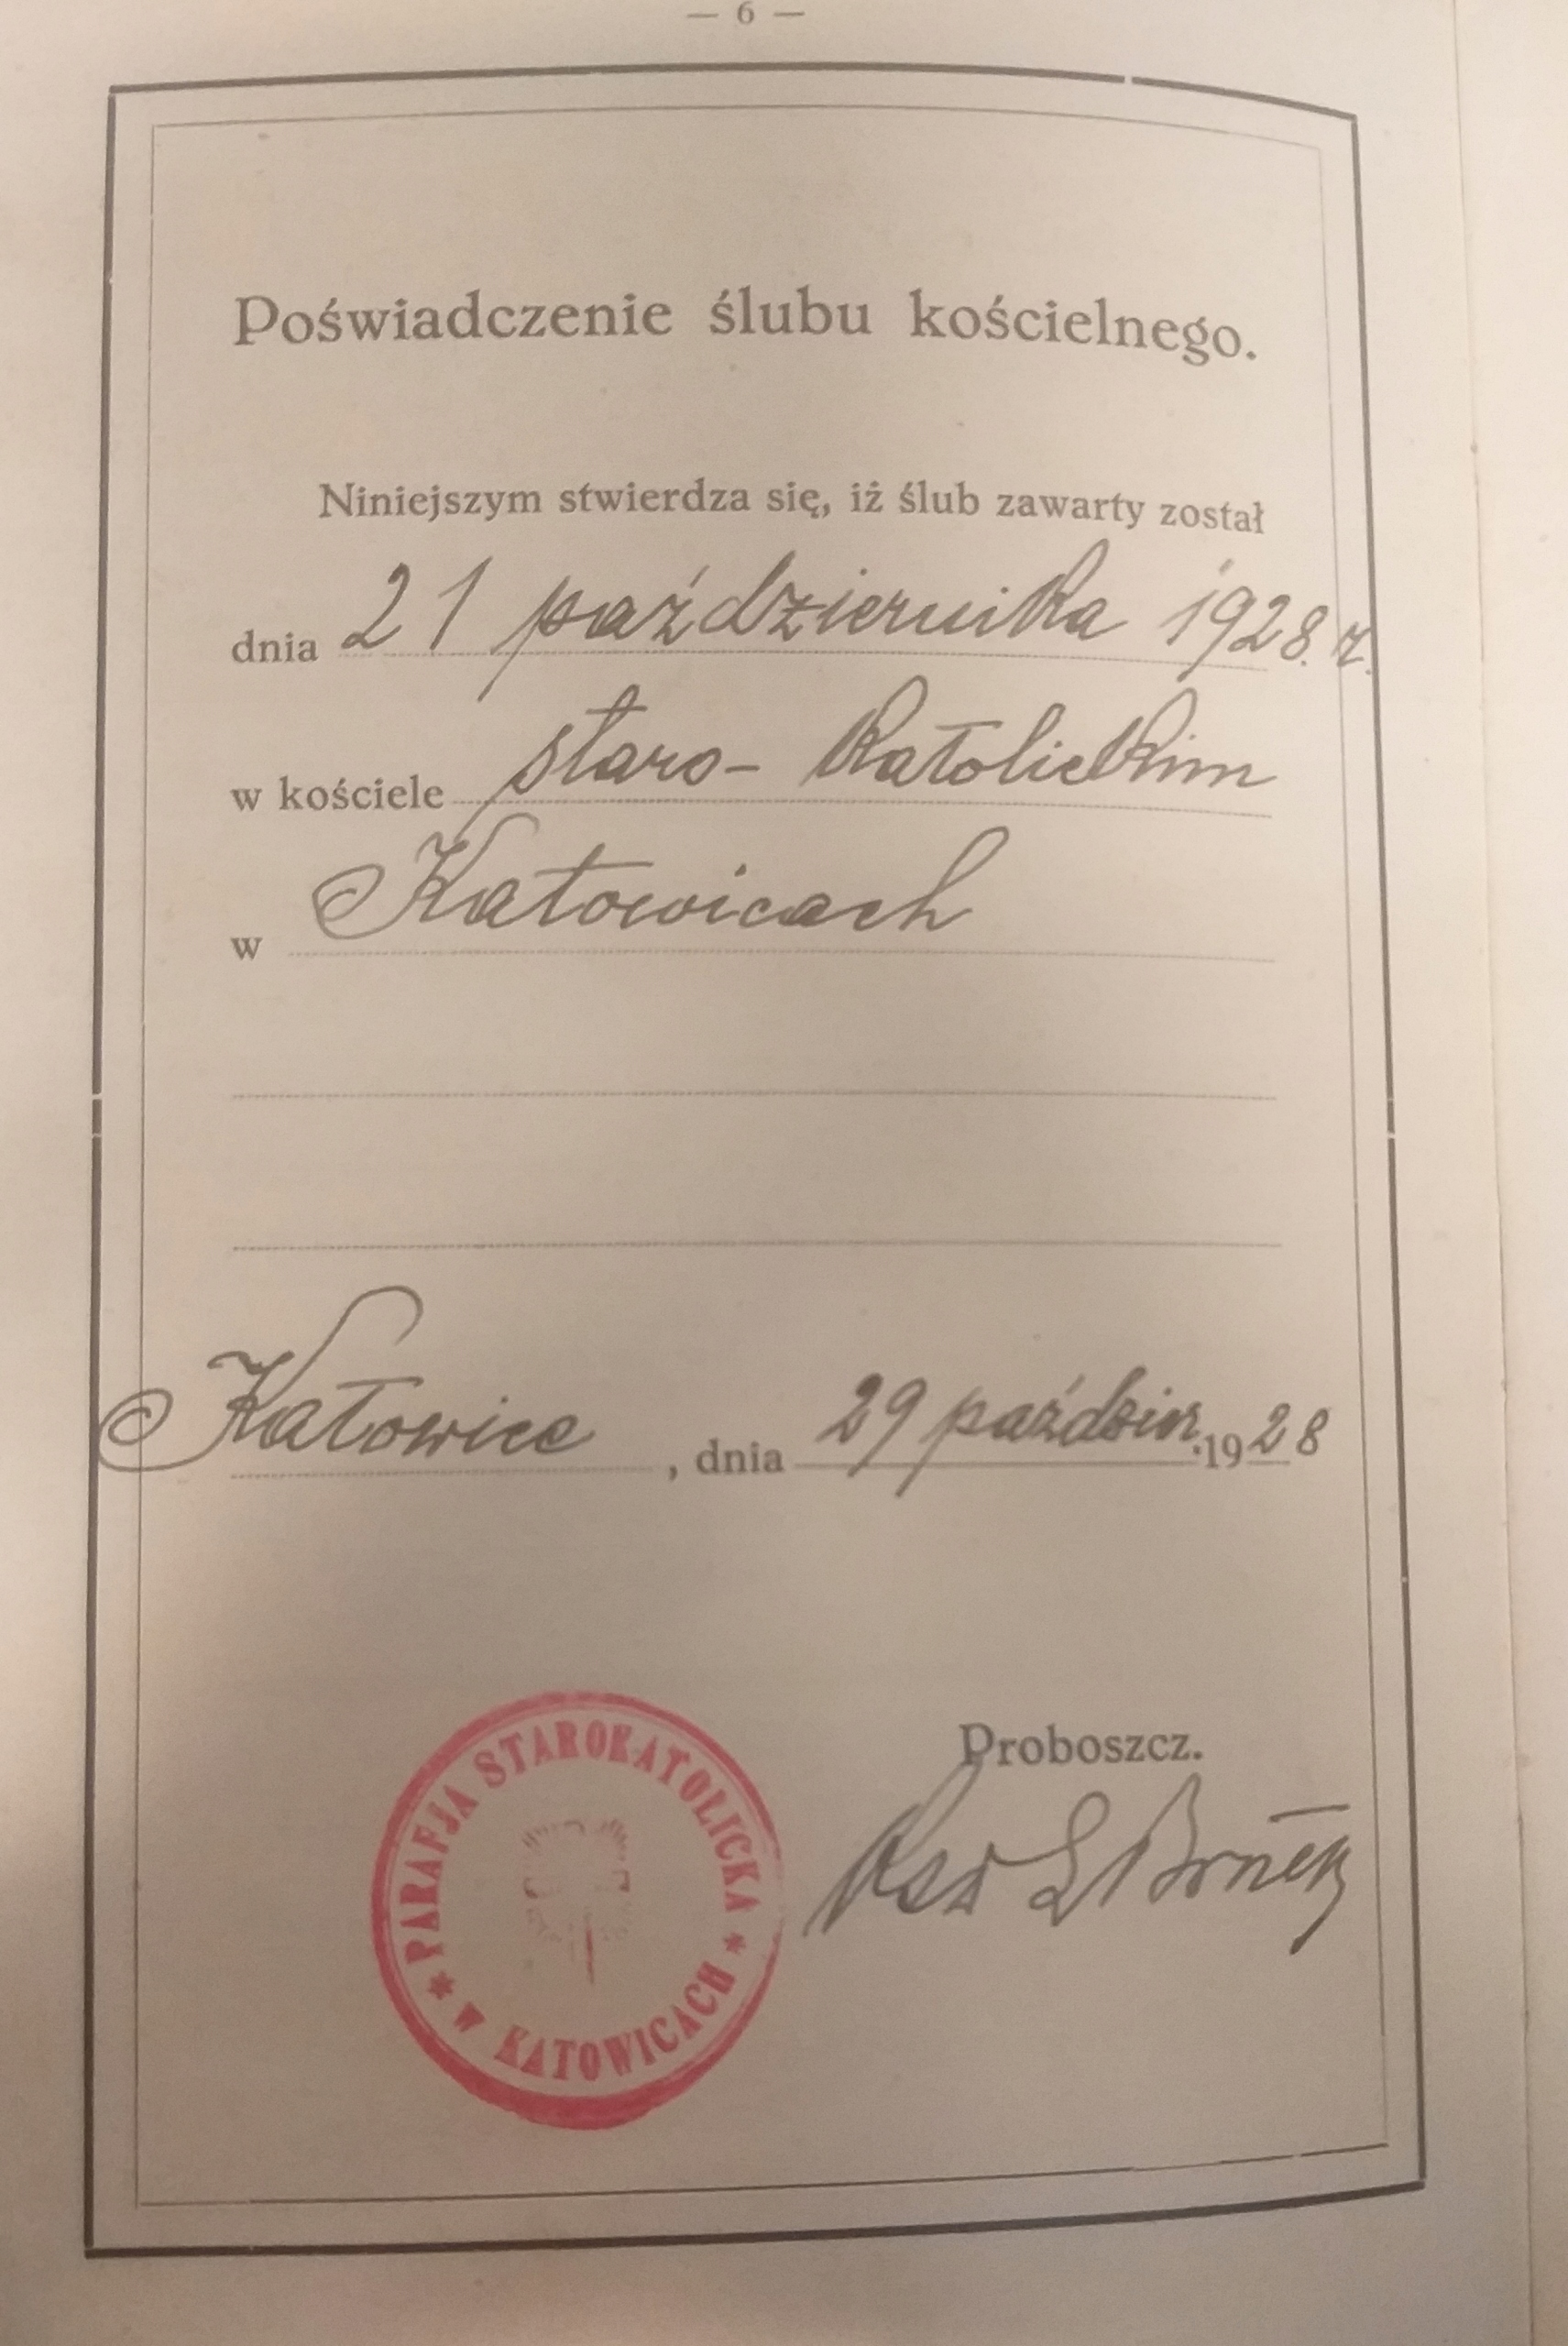 — 6 —
Poświadczenie ślubu kościelnego.
Niniejszym stwierdza się, iż ślub zawarty został
dnia 21 października 1928. r.
w kościele staro- katolickim
w Katowicach
Katowice, dnia 29 paździer. 1928
Proboszcz.
PARAFJA STAROKATOLICKA
W KATOWICACH